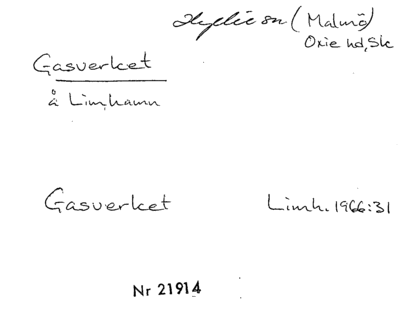 Hyllie sn (Malmö)
Oxie hd, Sk
Gasverket
å Limhamn
Gasverket Limh. 1966:31
Nr 21914